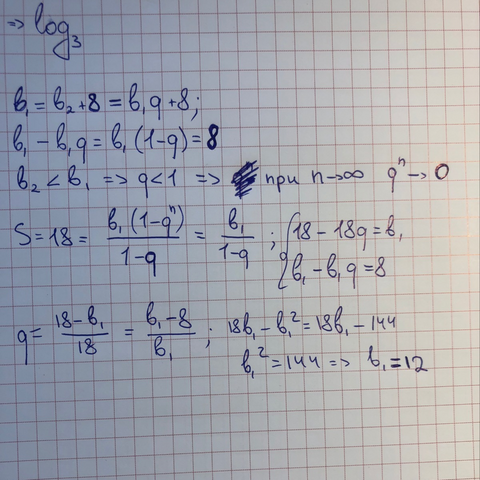 => log₃
b₁ = b₂ + 8 = b₁q + 8;
b₁ - b₁q = b₁(1-q) = 8
b₂ < b₁ => q < 1 => при n→∞ qⁿ→0
S = 18 = b₁(1-qⁿ)/(1-q) = b₁/(1-q); { 18 - 18q = b₁
b₁ - b₁q = 8
q = (18-b₁)/18 = (b₁-8)/b₁; 18b₁ - b₁² = 18b₁ - 144
b₁² = 144 => b₁ = 12